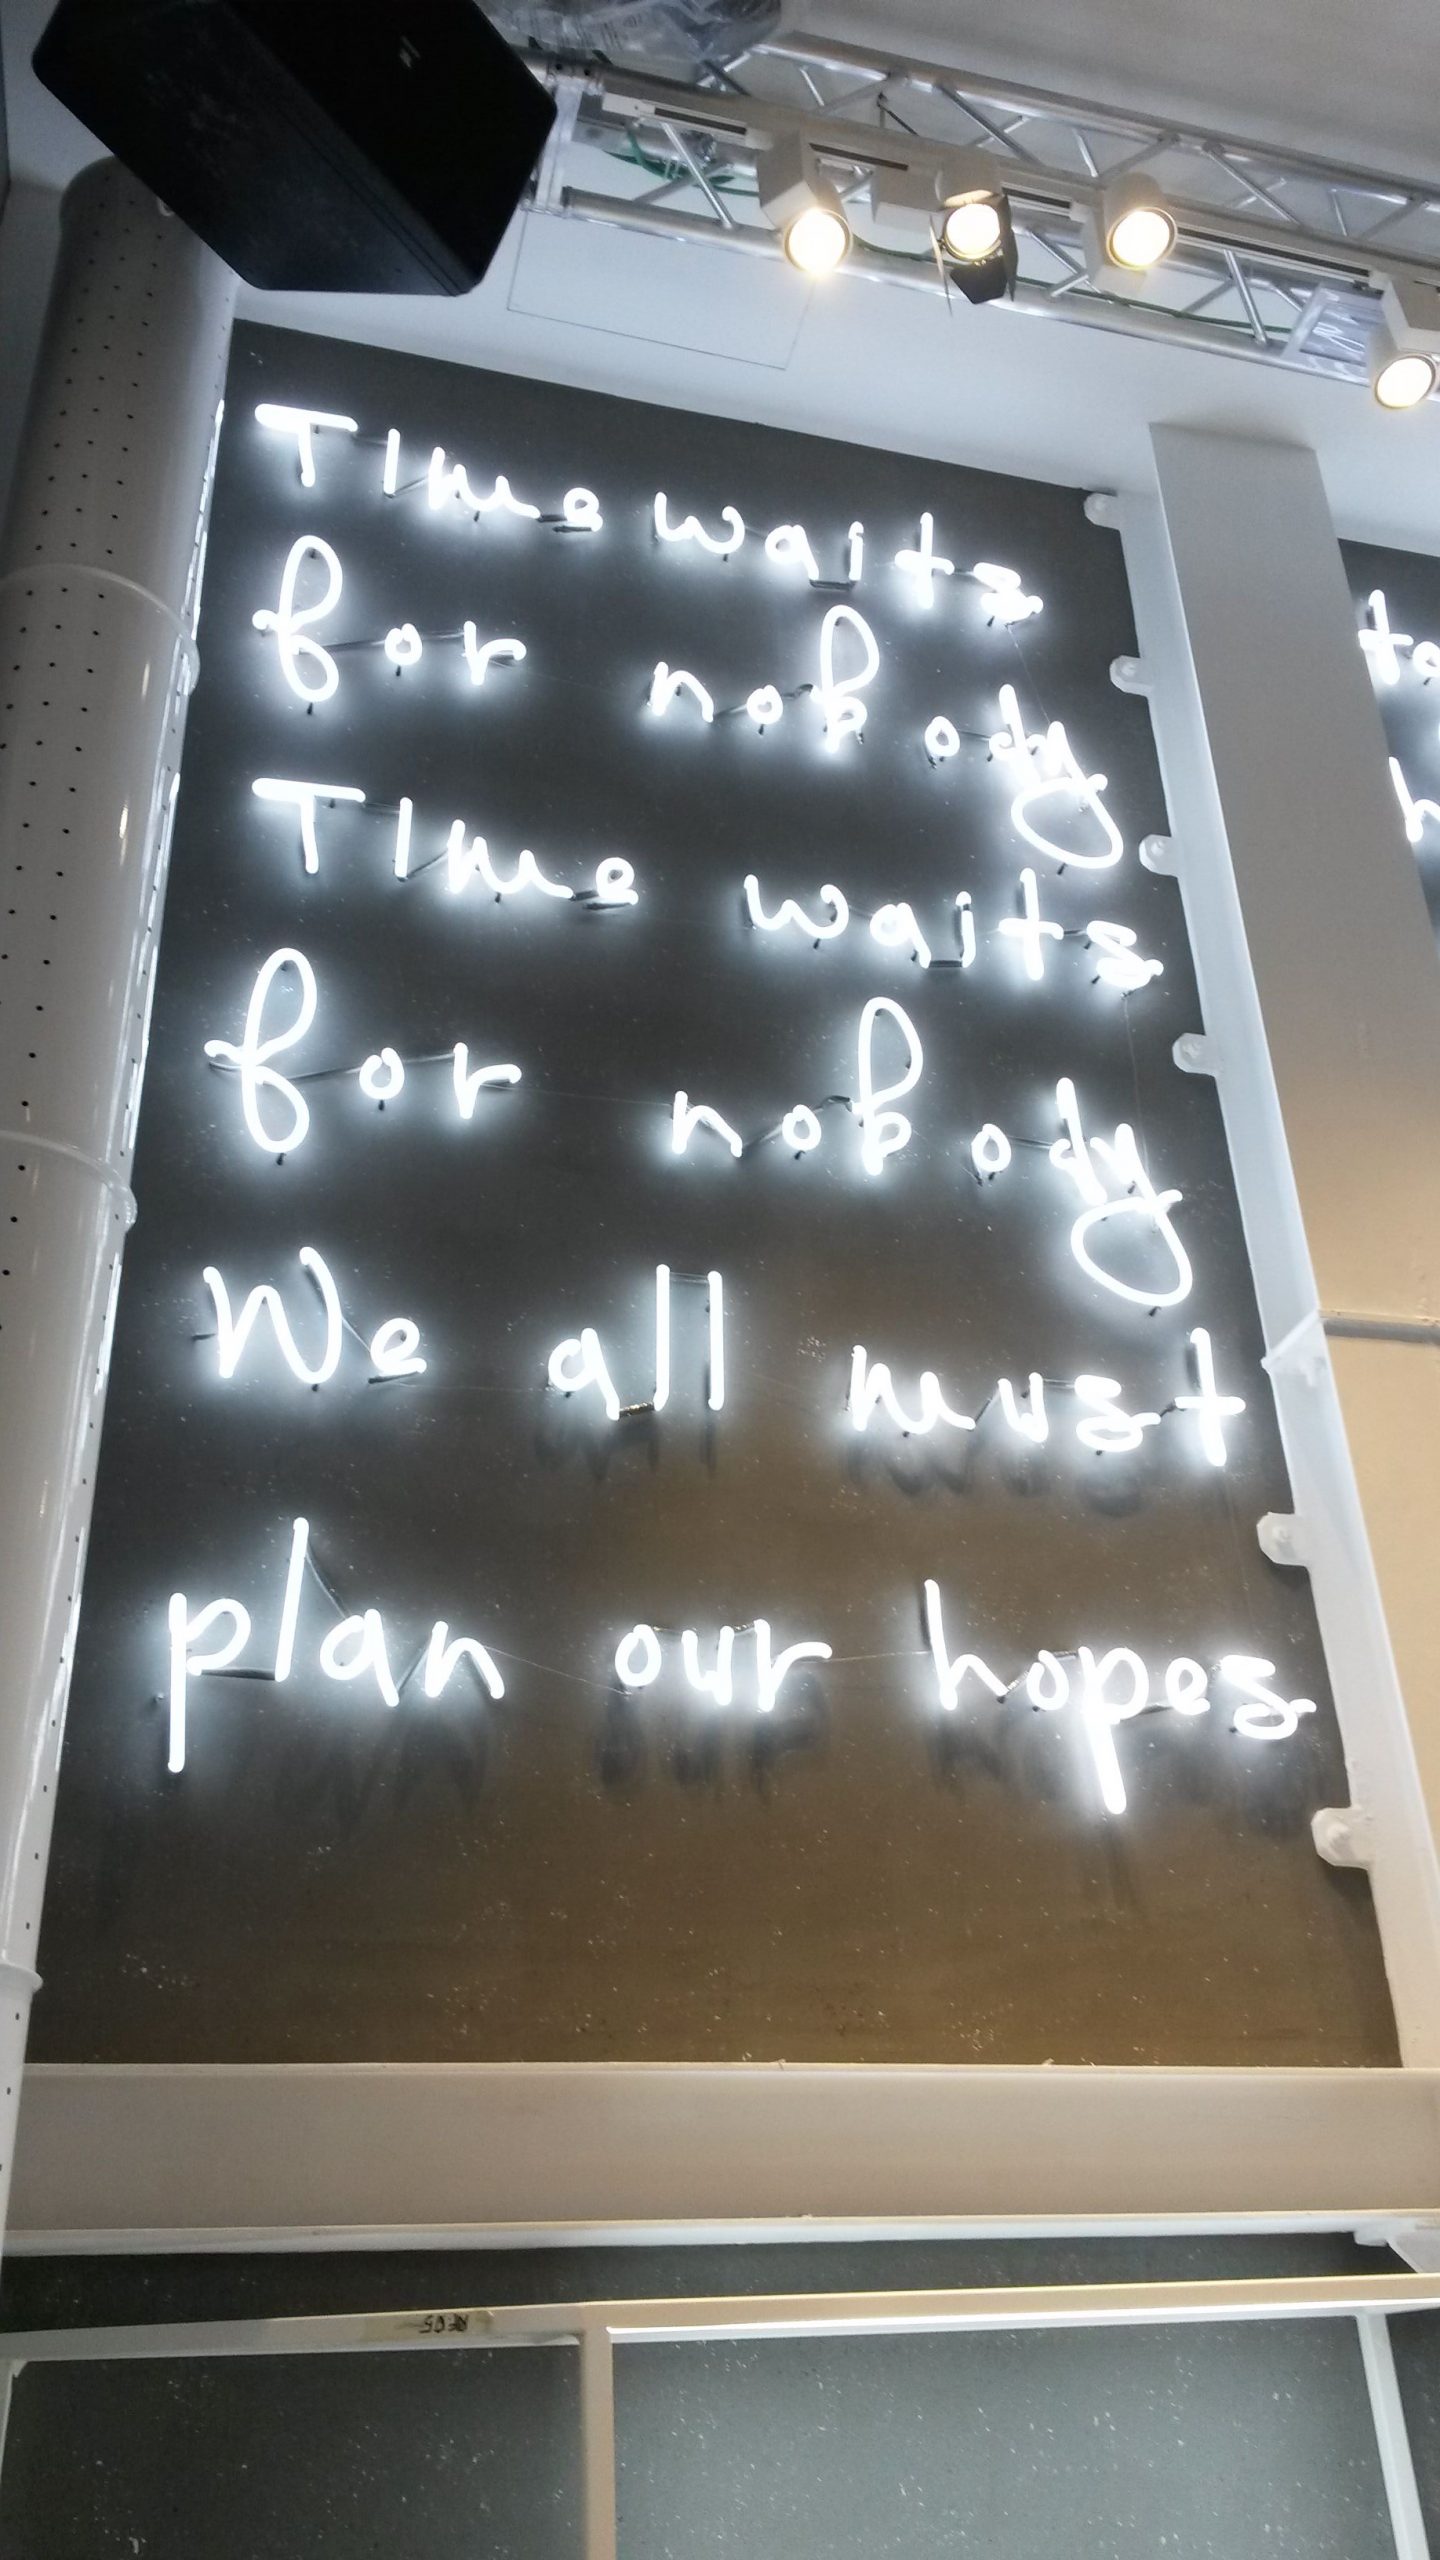 Time waits
for nobody
Time waits
for nobody
We all must
plan our hopes